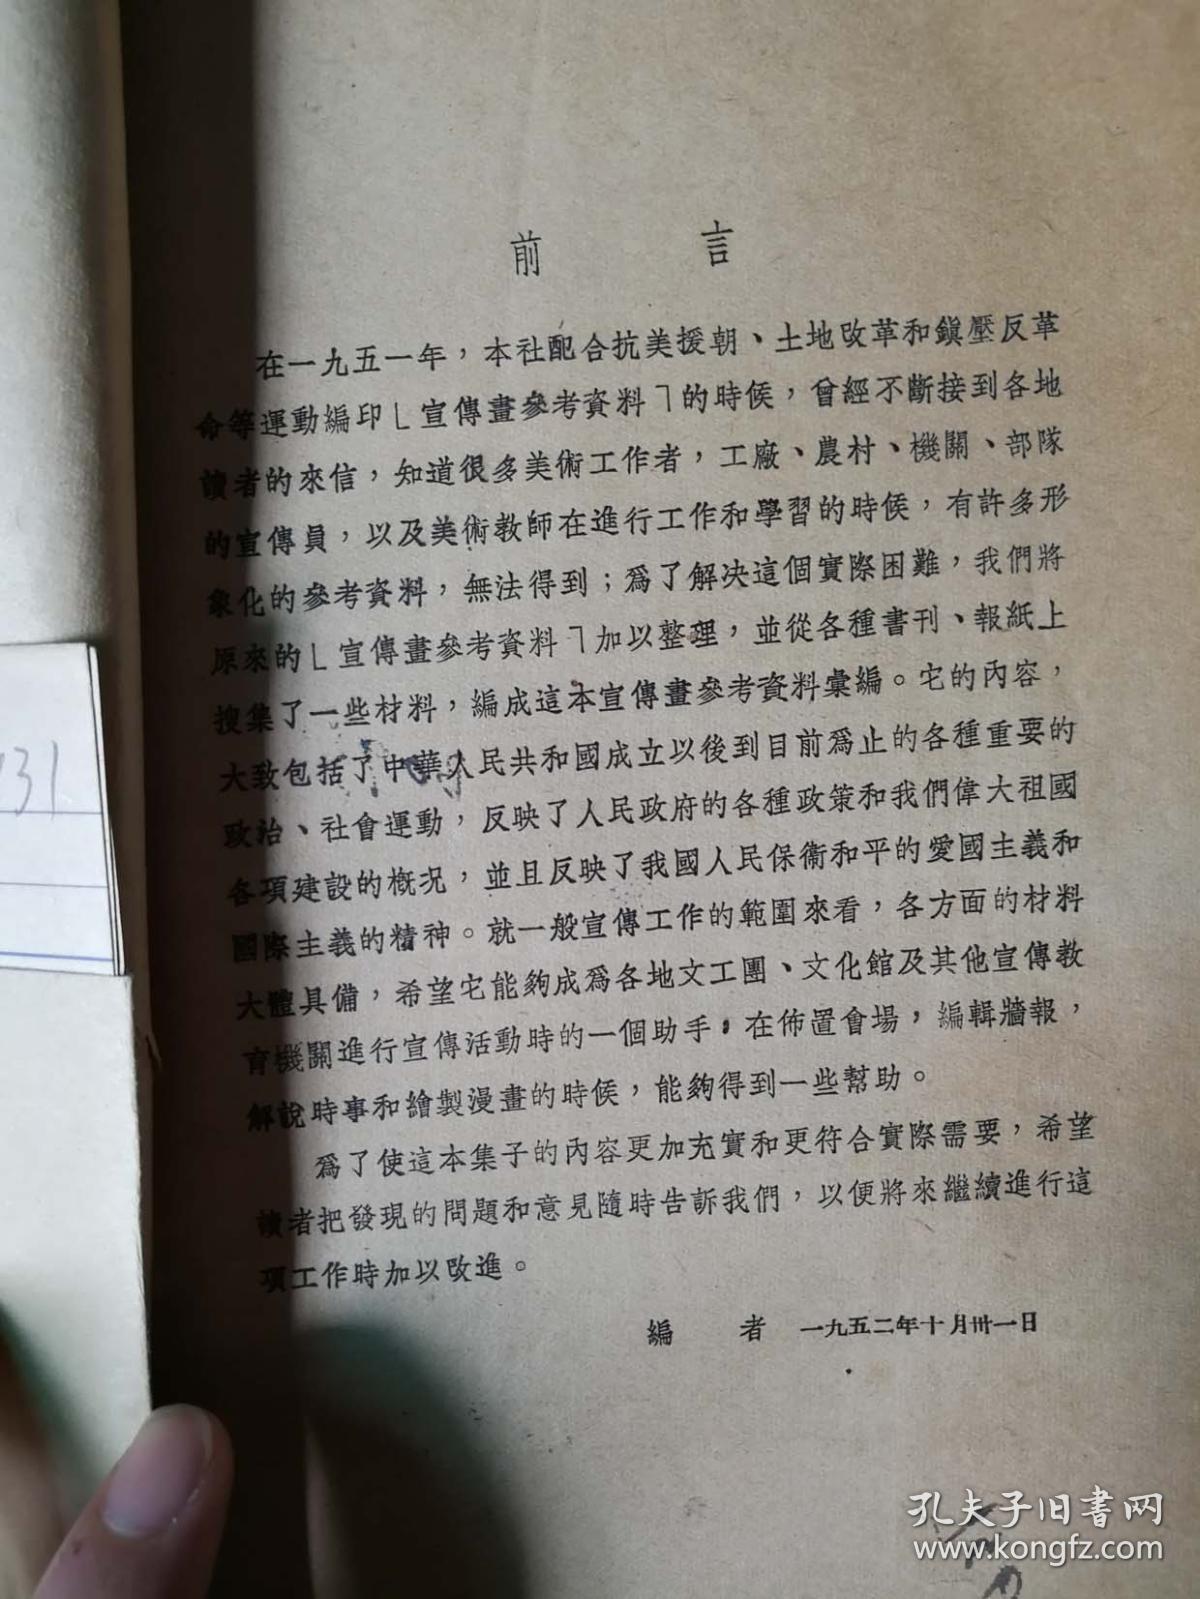 前言
在一九五一年，本社配合抗美援朝、土地改革和鎮壓反革
命等運動編印﹂宣傳畫參考資料﹁的時候，曾經不斷接到各地
讀者的來信，知道很多美術工作者，工廠、農村、機關、部隊
的宣傳員，以及美術教師在進行工作和學習的時候，有許多形
象化的參考資料，無法得到；爲了解决這個實際困難，我們將
原來的﹂宣傳畫參考資料﹁加以整理，並從各種書刊、報紙上
搜集了一些材料，編成這本宣傳畫參考資料彙編。它的內容，
大致包括了中華人民共和國成立以後到目前爲止的各種重要的
政治、社會運動，反映了人民政府的各種政策和我們偉大祖國
各項建設的概況，並且反映了我國人民保衞和平的愛國主義和
國際主義的精神。就一般宣傳工作的範圍來看，各方面的材料
大體具備，希望它能夠成爲各地文工團、文化館及其他宣傳教
育機關進行宣傳活動時的一個助手，在佈置會場，編輯牆報，
解說時事和繪製漫畫的時候，能夠得到一些幫助。
爲了使這本集子的內容更加充實和更符合實際需要，希望
讀者把發現的問題和意見隨時告訴我們，以便將來繼續進行這
項工作時加以改進。
編者 一九五二年十月卅一日
31
孔夫子旧书网
www.kongfz.com